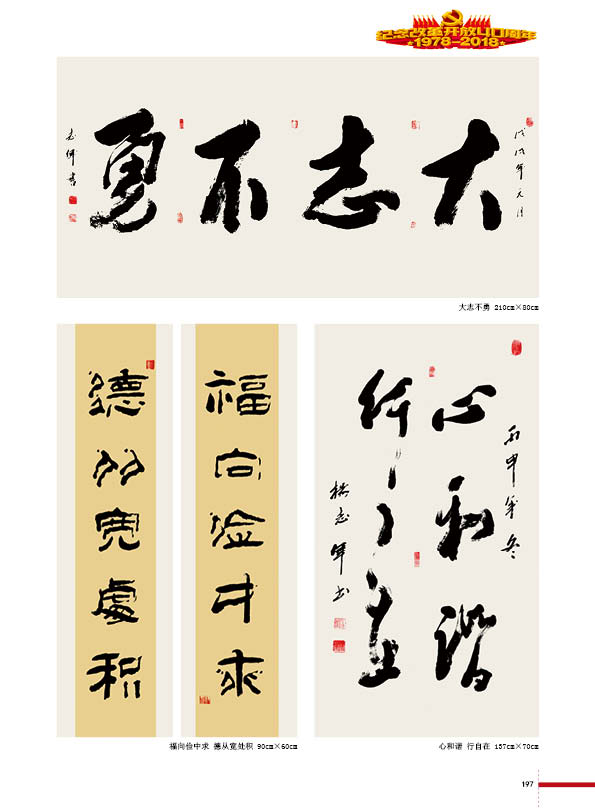 纪念改革开放40周年
1978-2018
戊戌年元月
大志不勇
大志不勇 210cm×80cm
福向儉中求
德从寬處积
福向俭中求 德从宽处积 90cm×60cm
心和谐
心和谐 行自在 137cm×70cm
197